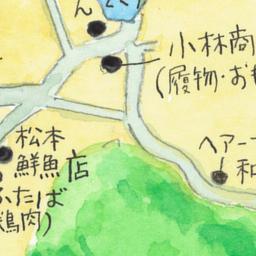 ん
小林商
(履物・お
松本
鮮魚店
ふたば
鶏肉)
ヘアー
和